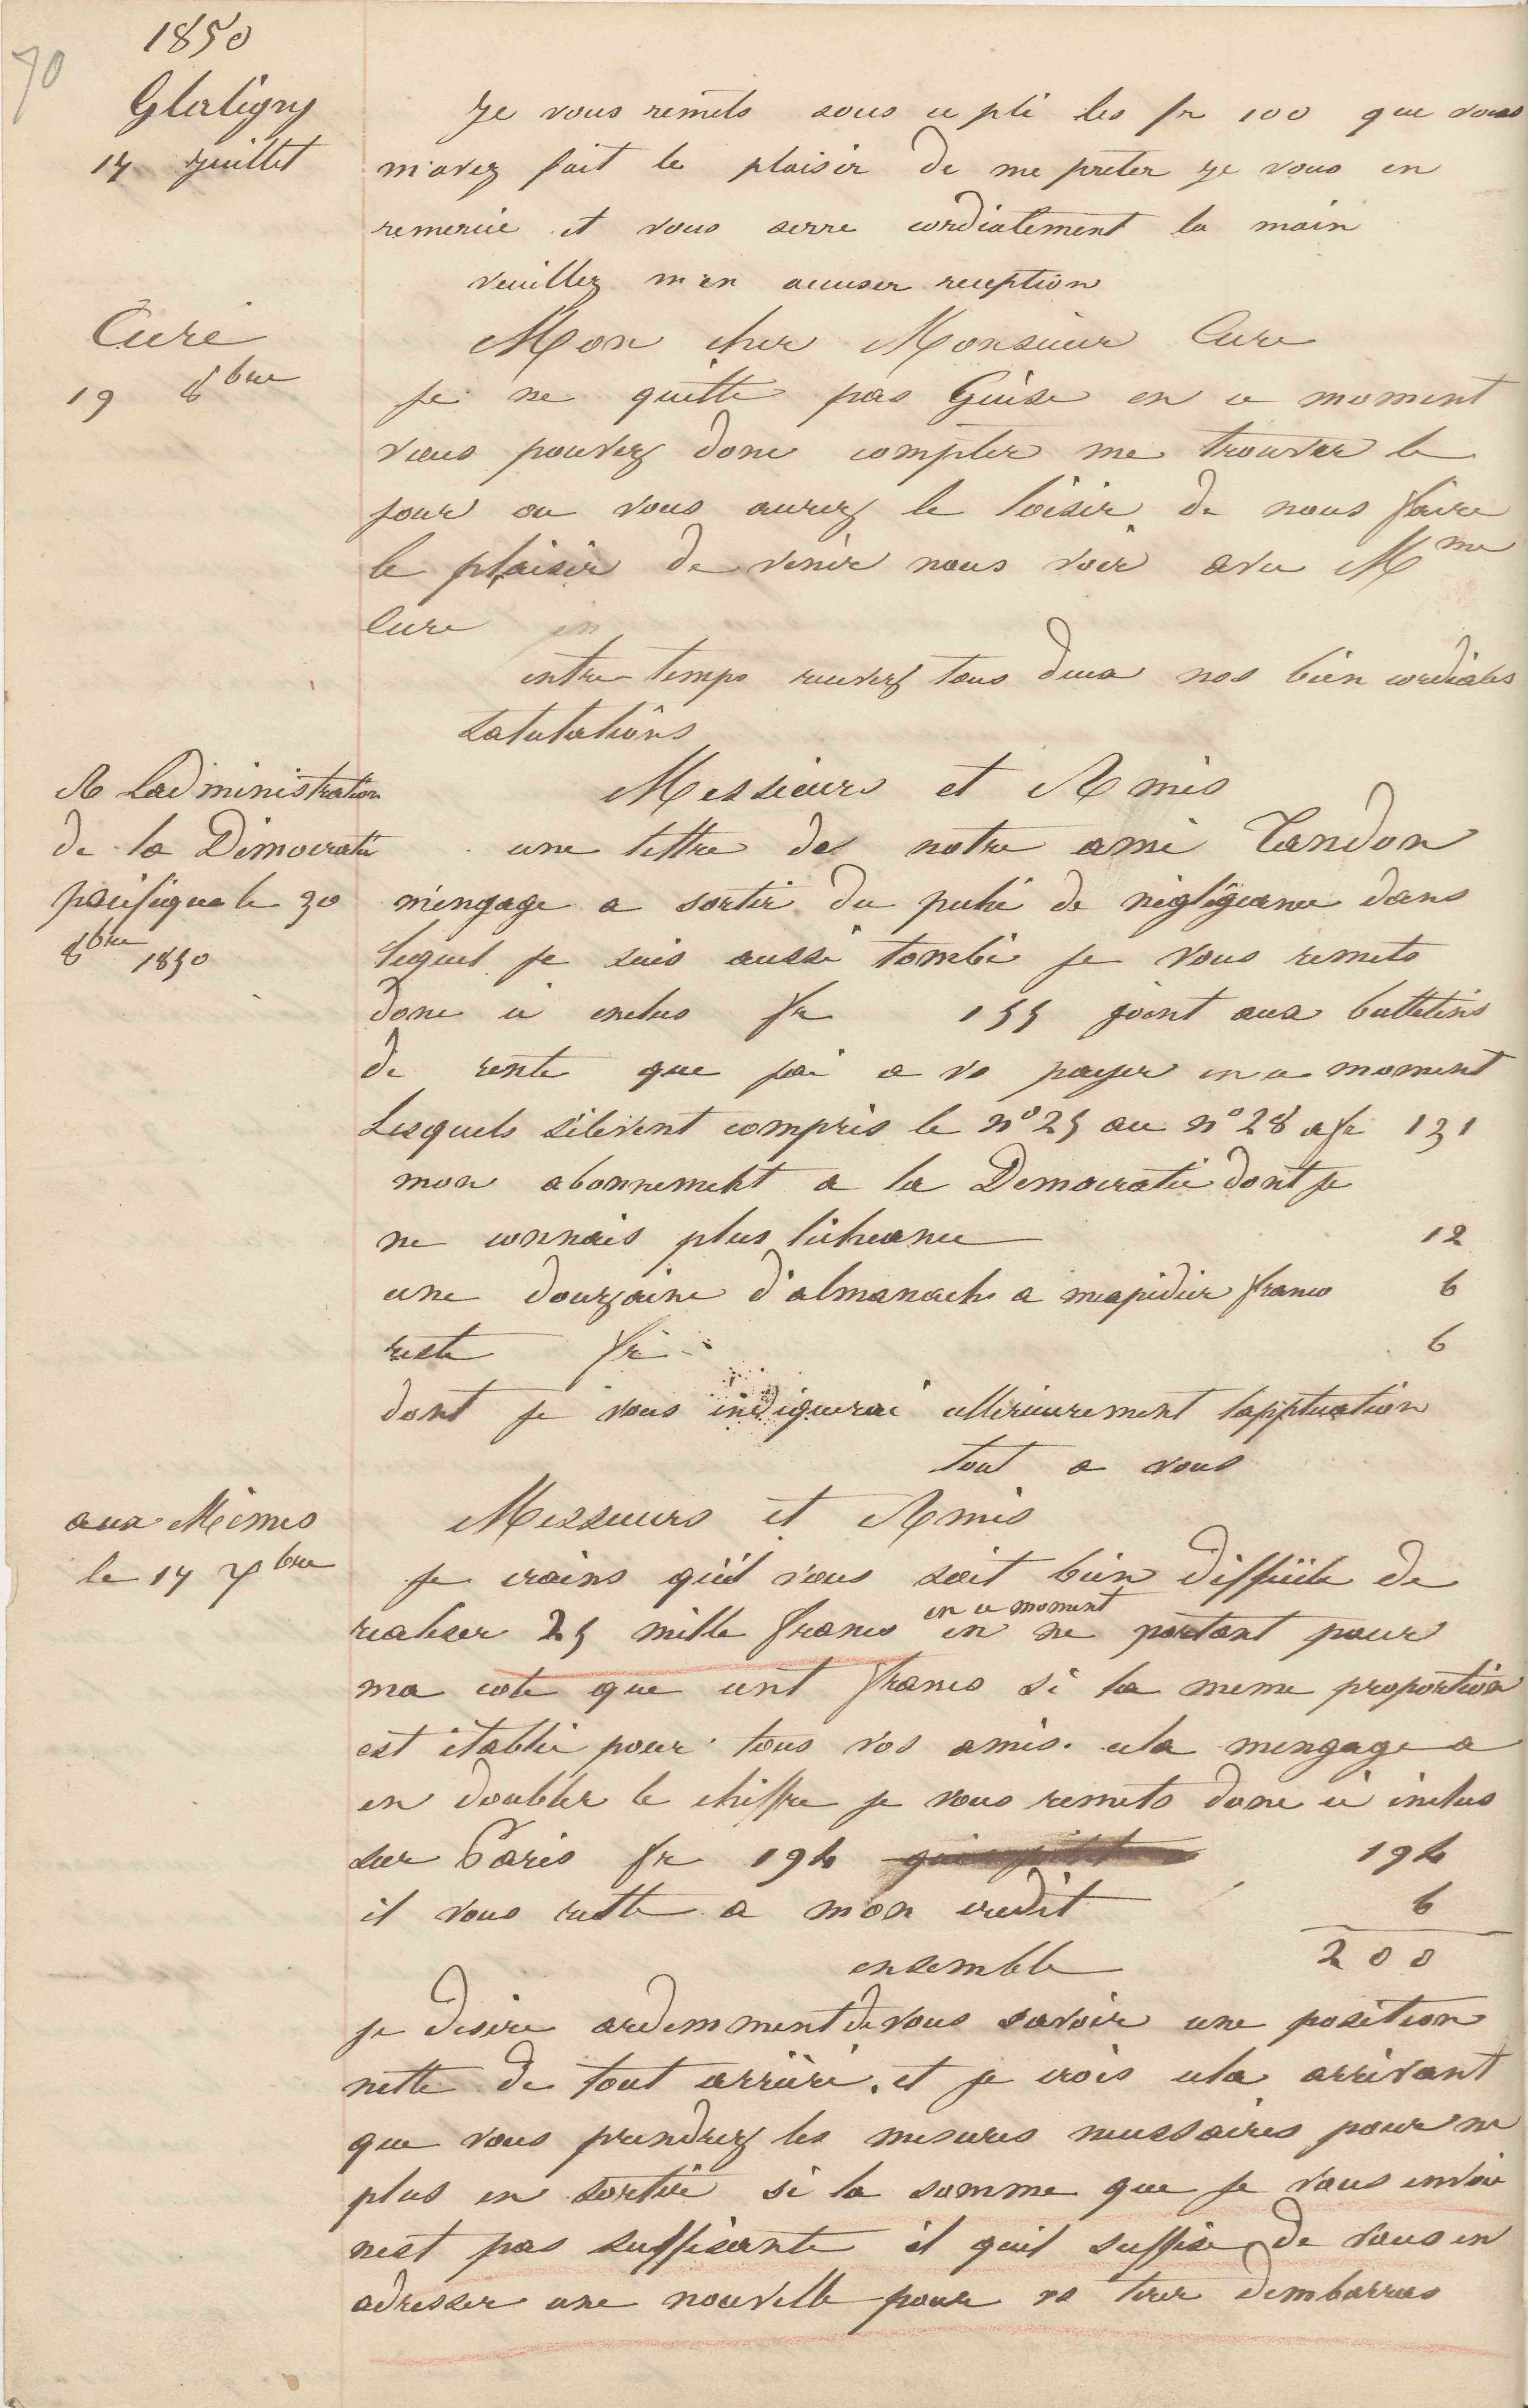 70
1850
Glatigny
17 Juillet
Je vous remets sous ce pli les fr 100 que vous
m'avez fait le plaisir de me preter je vous en
remercie et vous serre cordialement la main
veuillez m'en accuser reception
Cure
19 8bre
Mon cher Monsieur Cure
je ne quitte pas Guise en ce moment
vous pouvez donc compter me trouver le
jour ou vous aurez le loisir de nous faire
le plaisir de venir nous voir avec Mme
Cure
entre temps recevez tous deux nos bien cordiales
salutations
A Ladministration
de la Démocratie
pacifique le 30
8bre 1850
Messieurs et Amis
une lettre de notre ami Tandon
m'engage a sortir du peché de négligeance dans
lequel je suis aussi tombé je vous remets
donc ci inclus fr 155 joint aux bulletins
de rente que j'ai a vs payer en ce moment
Lesquels s'élevent compris le n° 25 au n° 28 a fr 131
mon abonnement a la Democratie dont je
ne connais plus l'écheance 12
une douzaine d'almanach a m'expédier franco 6
reste fr 6
dont je vous indiquerai ulterieurement lapplication
tout a vous
aux Mêmes
le 17 Xbre
Messieurs et Amis
je crains qu'il vous soit bien difficile de
realiser 25 mille francs en ce moment en ne portant pour
ma cote que cent francs si la meme proportion
est établie pour tous vos amis. cela mengage a
en doubler le chiffre je vous remets donc ci inclus
sur Paris fr 194 194
il vous reste a mon credit 6
ensemble 200
je desire ardemment de vous savoir une position
nette de tout arriéré. et je crois cela arrivant
que vous prendrez les mesures necessaires pour ne
plus en sortir si la somme que je vous envoie
nest pas suffisante et quil suffise de vous en
adresser une nouvelle pour vs tirer dembarras